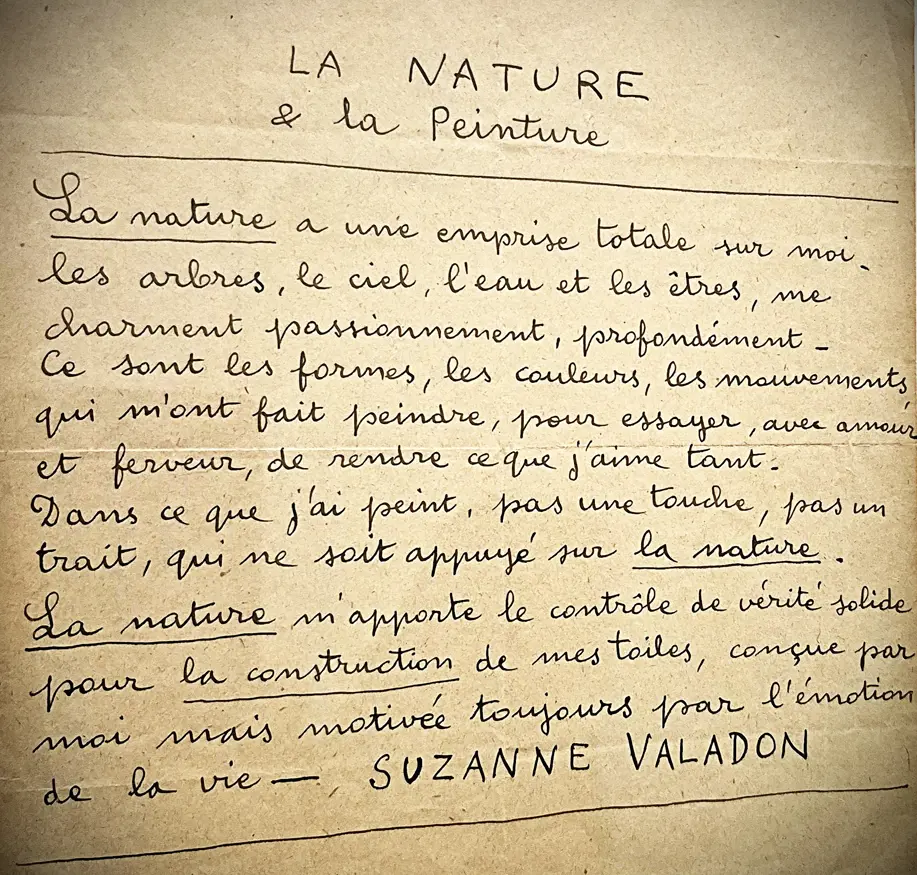 LA NATURE
& la Peinture
La nature a une emprise totale sur moi.
les arbres, le ciel, l'eau et les êtres, me
charment passionnement, profondément -
Ce sont les formes, les couleurs, les mouvements
qui m'ont fait peindre, pour essayer, avec amour
et ferveur, de rendre ce que j'aime tant.
Dans ce que j'ai peint, pas une touche, pas un
trait, qui ne soit appuyé sur la nature.
La nature m'apporte le contrôle de vérité solide
pour la construction de mes toiles, conçue par
moi mais motivée toujours par l'émotion
de la vie — SUZANNE VALADON